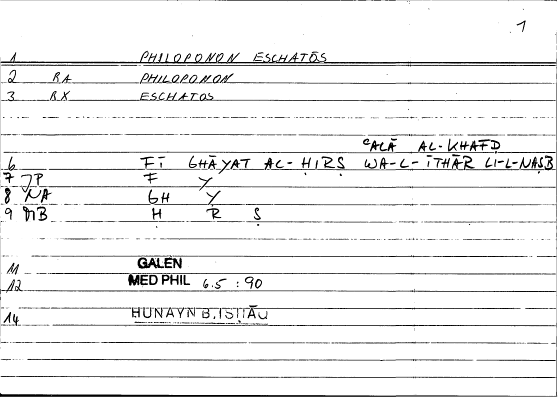 1
1 PHILOPONON ESCHATŌS
2 RA PHILOPONON
3 RX ESCHATOS
ʿALĀ AL-KHAFḌ
6 FĪ GHĀYAT AL-ḤIRṢ WA-L-ĪTHĀR LI-L-NAṢB
7 JP F Y
8 NA GH Y
9 MB Ḥ R Ṣ
11 GALEN
12 MED PHIL 6.5 : 90
14 HUNAYN B. ISḤĀQ